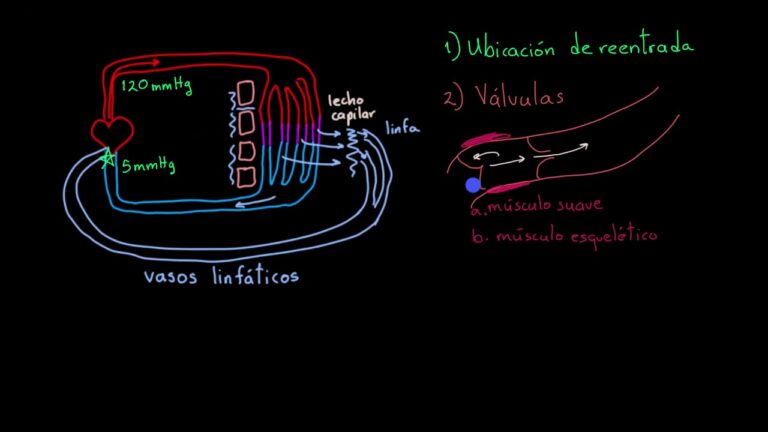 120mmHg
5mmHg
lecho
capilar
linfa
vasos linfáticos
1) Ubicación de reentrada
2) Válvulas
a. músculo suave
b. músculo esquelético